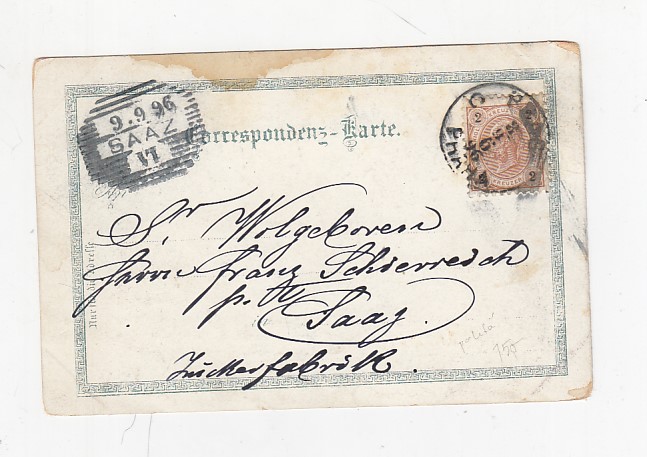 9.9.96
SAAZ
VI
Correspondenz-Karte.
2 2
KREUZER
2
Sr Wolgeboren
Herrn Franz Schierreich
p. t.
Saaz.
Zuckerfabrik.
Nur für die Adresse
150